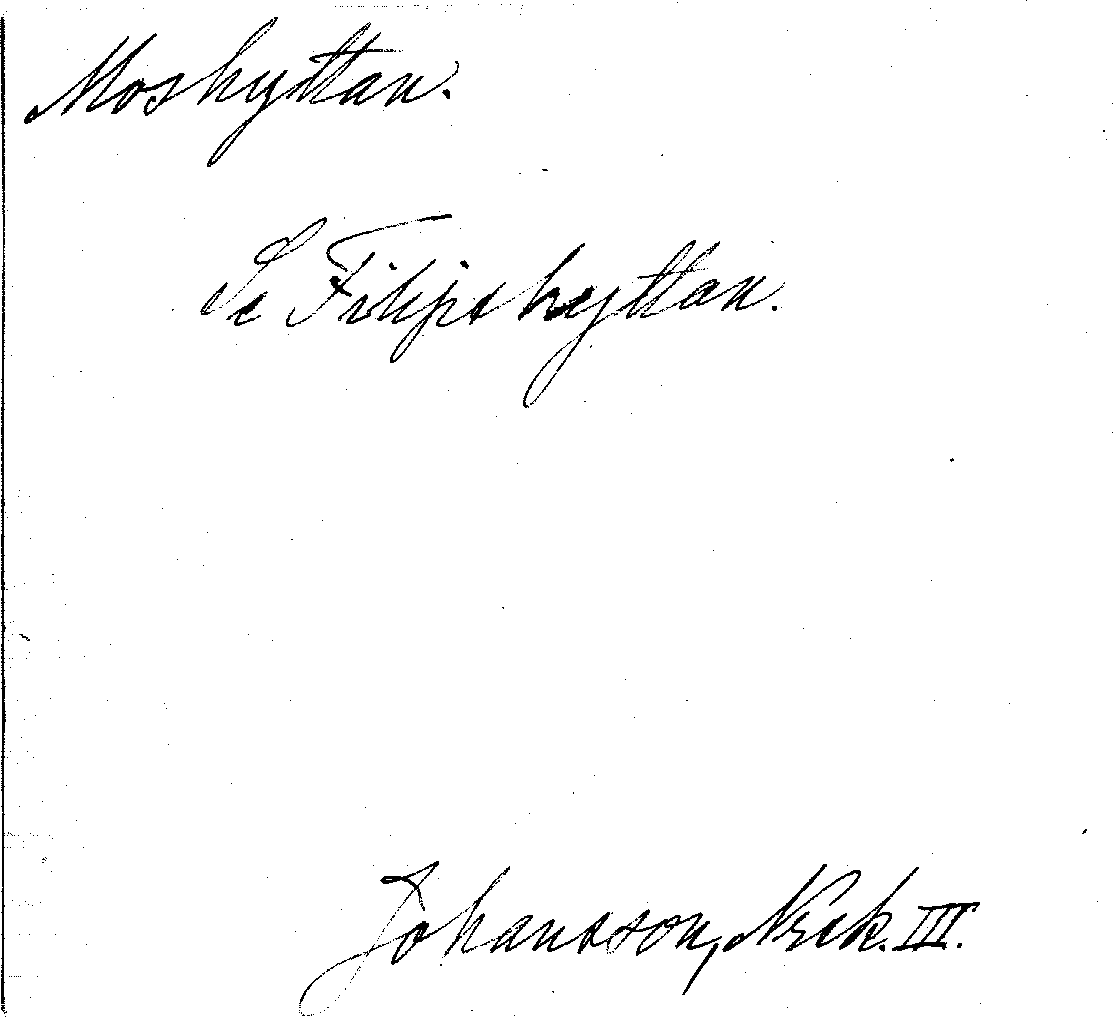 Moshyttan.
Se Filipshyttan.
Johansson, Noak. III.